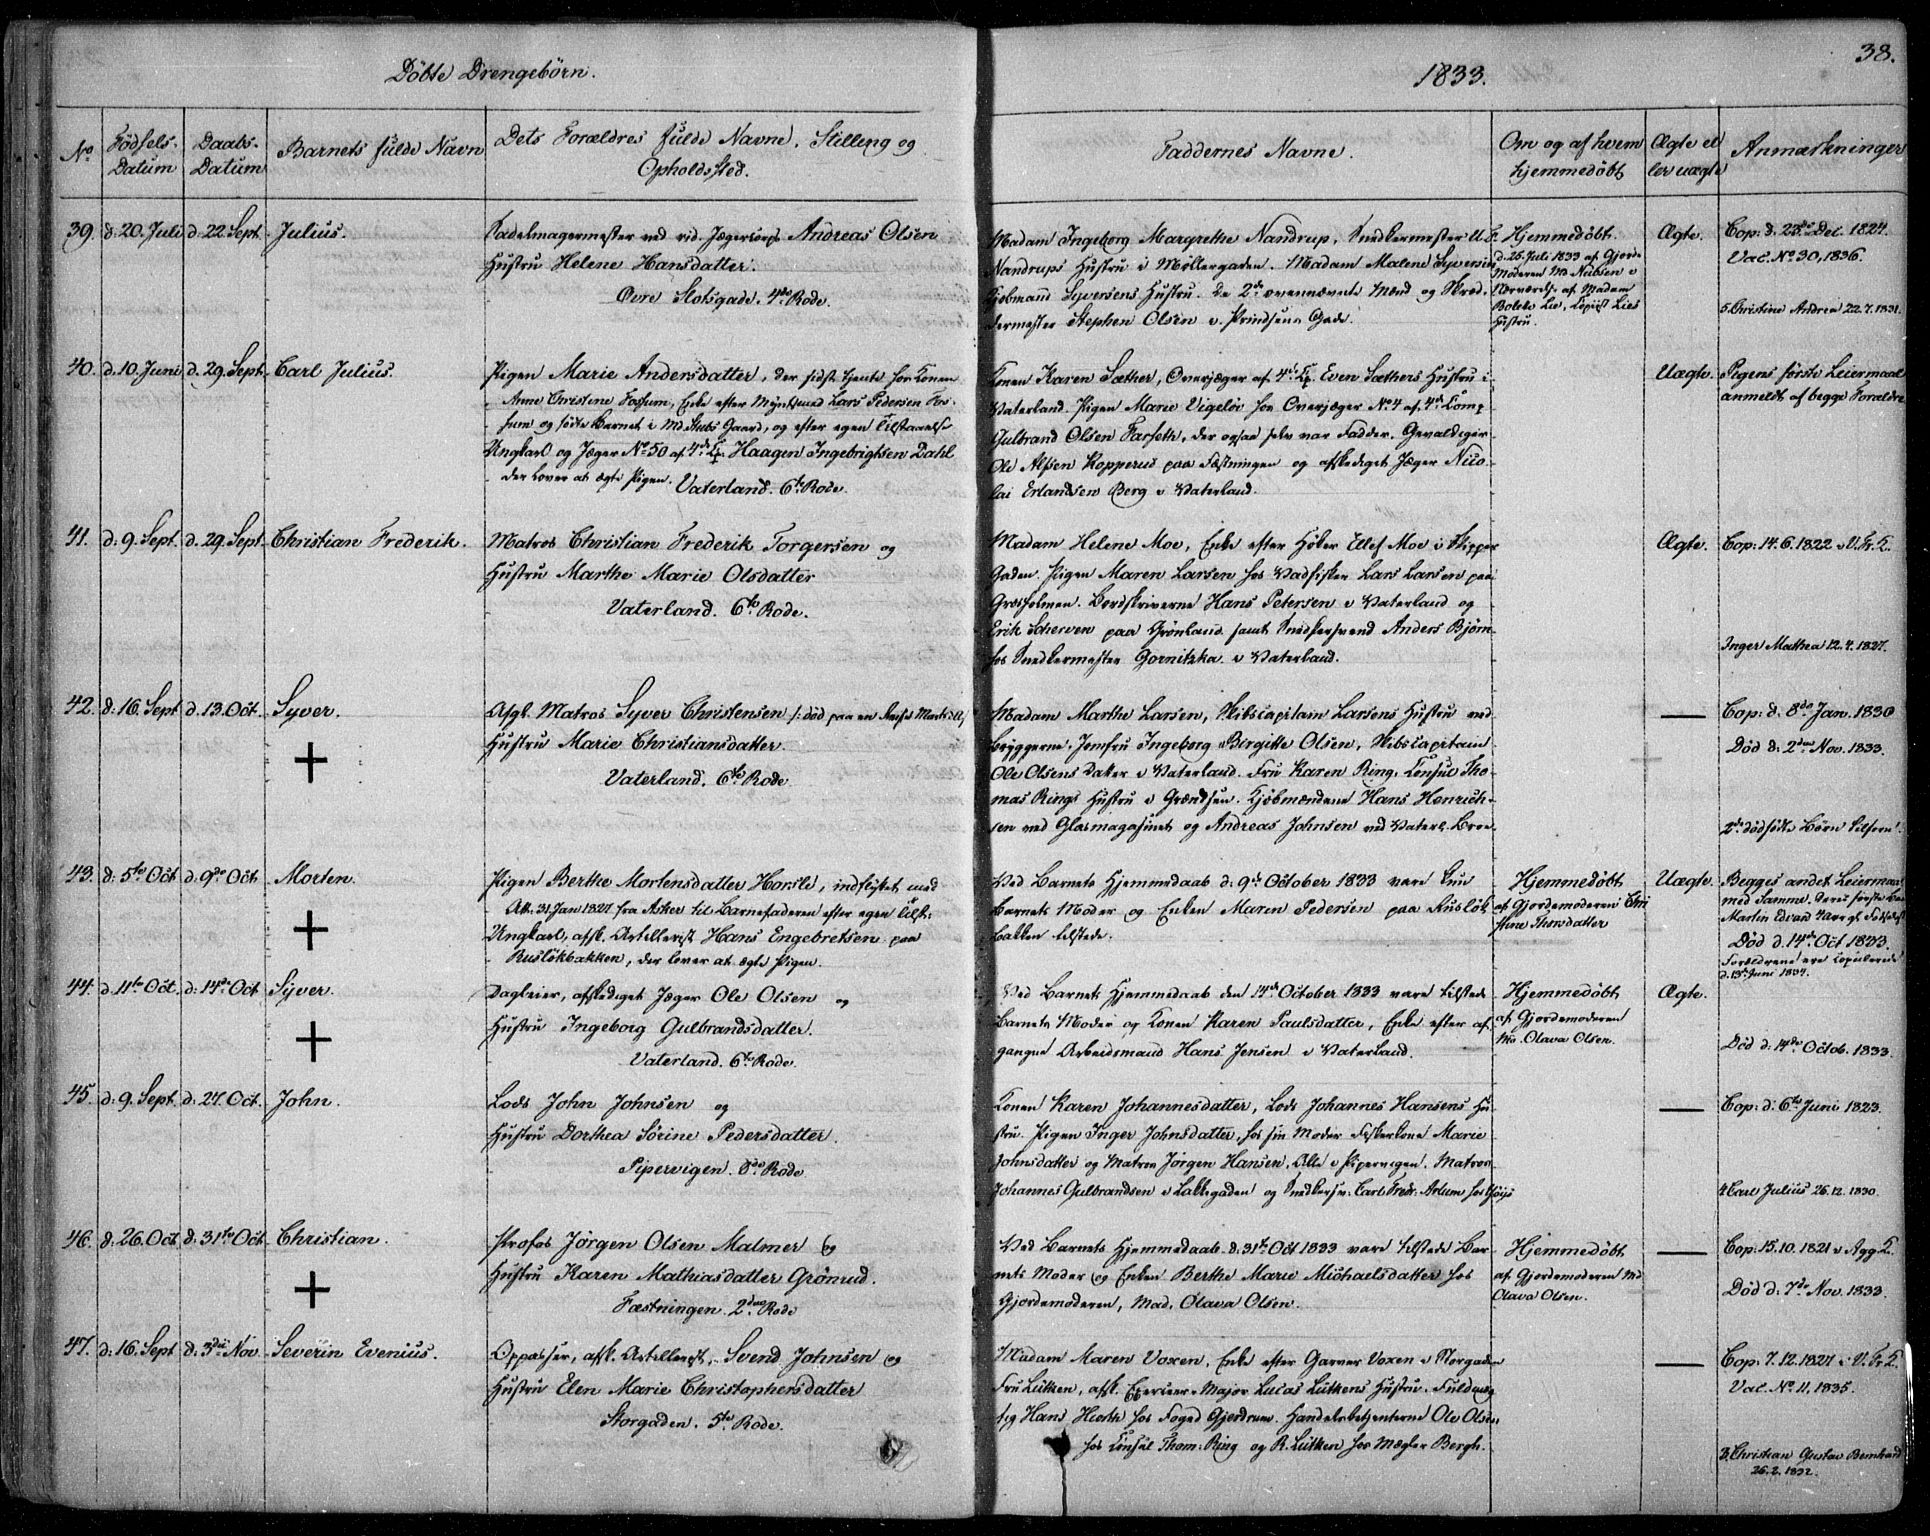 Döbte Drengebörn.
1833.
38.
No
Födsels-Datum
Daabs-Datum
Barnets fulde Navn
Dets Forældres fulde Navne, Stilling og
Opholdssted.
Faddernes Navne.
Om og af hvem
hjemmedöbt
Ægte el
ler uægte
Anmærkninger
39. d. 20. Juli d. 22 Sept. Julius.
Sadelmagermester ved rid. Jægercorps Andreas Olsen
Hustru Helene Hansdatter.
Övre Slotsgade. 4de Rode.
Madam Ingeborg Margrethe Nandrup, Snedkermester
Nandrups Hustru i Möllergaden. Madam Malene Syversen
Kjöbmand Syversens Hustru. De 2de ovennævnte Mænd og Skræd-
dermester Stephen Olsen v. Prindsens Gade.
Hjemmedöbt
d. 26. Juli 1833 af Gjorde
moderen Md Nielsen i
Nærværelse af Madam
Bolette Lie, Copiist Lies
Hustru.
Ægte.
Cop: d. 28de Dec. 1824.
Vac. No 30, 1836.
5. Christine Andrea 22.7.1831.
40. d. 10. Juni d. 29. Sept. Carl Julius.
Pigen Marie Andersdatter, der sidst tjente hos Konen
Anne Christine Fossum, Enke efter Myntsmed Lars Pedersen Fos-
sum og födte Barnet i Md. Stubs Gaard, og efter egen Tilstaaelse
Ungkarl og Jæger No 50 af 4de Cp. Haagen Ingebrigtsen Dahl
der lover at ægte Pigen. Vaterland. 6te Rode.
Konen Karen Sæther, Overjæger af 4de Cp. Even Sæthers Hustru i
Vaterland. Pigen Marie Vigelöv hos Overjæger No 4 af 4de Comp
Gulbrand Olsen Farseth, der ogsaa selv var Fadder. Gevaldiger
Ole Alfsen Kopperud paa Fæstningen og afskediget Jæger Nico-
lai Erlandsen Berg i Vaterland.
Uægte.
Pigens förste Leiermaal
anmeldt af begge Forældre
41. d. 9. Sept. d. 29. Sept. Christian Frederik.
Matros Christian Frederik Torgersen og
Hustru Marthe Marie Olsdatter
Vaterland. 6te Rode.
Madam Helene Moe, Enke efter Höker Ellef Moe i Skipper
Gaden. Pigen Maren Larsen hos Vadfisker Lars Larsen paa
Græsholmen. Bordskriverne Hans Petersen i Vaterland og
Erik Scherven paa Grönland samt Snedkersvend Anders Björn
hos Snedkermester Gornitzka i Vaterland.
Ægte.
Cop: 14.6.1822 i V. Fr. K.
Inger Mathea 12.4.1827.
42. d. 16. Sept d. 13. Oct. Syver.
Afgl. Matros Syver Christensen /: död paa en
Hustru Marie Christiansdatter.
Vaterland. 6te Rode
Madam Marthe Larsen, Skibscapitain Larsens Hustru ved
Bryggerne. Jomfru Ingeborg Birgitte Olsen, Skibscapitain
Ole Olsens Datter i Vaterland. Fru Karen Ring, Consul Tho-
mas Rings Hustru i Grændsen. Kjöbmændene Hans Henrich-
sen ved Glasmagasinet og Andreas Johnsen ved Vaterl. Broe.
—
Cop: d. 8de Jan. 1830
Död d: 2den Nov. 1833.
2de dödfödte Börn tilforn.
43. d: 5te Oct d: 9de Oct. Morten.
Pigen Berthe Mortensdatter Honsle, indflyttet med
Att. 31 Jan 1827 fra Asker til Barnefaderen efter egen Tilst:
Ungkarl, afsk. Artillerist Hans Engebretsen paa
Ruslökbakken, der lover at ægte Pigen.
Ved Barnets Hjemmedaab d: 9de October 1833 vare kun
Barnets Moder og Enken Maren Pedersen paa Ruslök
Bakken tilstede.
Hjemmedöbt
af Gjordemoderen Chri
stine Thowdatter
Uægte.
Begges andet Leiermaal
med Samme. Deres förste
Martin Edvard
Död d. 14de Oct 1833.
Forældrene ere Copulerede
d. 13de Juni 1834.
44. d: 11te Oct. d: 14de Oct Syver.
Dagleier, afskediget Jæger Ole Olsen og
Hustru Ingeborg Gulbrandsdatter.
Vaterland. 6te Rode.
Ved Barnets Hjemmedaab den 14de October 1833 vare tilstede
Barnets Moder og Konen Karen Paulsdatter, Enke efter af-
gangne Arbeidsmand Hans Jensen i Vaterland.
Hjemmedöbt
af Gjordemoderen
Md. Olava Olsen.
Ægte.
Död d: 14de Octob. 1833.
45. d: 9. Sept. d: 27. Oct. John.
Lods John Johnsen og
Hustru Dorthea Sörine Pedersdatter.
Pipervigen. 8de Rode
Konen Karen Johannesdatter, Lods Johannes Hansens Hu-
stru. Pigen Inger Johnsdatter, hos sin Moder Fiskerkone Marie
Johnsdatter og Matros Jörgen Hansen, Alle i Pipervigen. Matros
Johannes Gulbrandsen i Lakkegaden og Snedkersv: Carl Fredr. Artum hos
—
Cop: d: 6te Juni 1823.
4 Carl Julius 26.12.1830.
46. d: 26. Oct. d: 31te Oct. Christian.
Profos Jörgen Olsen Malmer og
Hustru Karen Mathiasdatter Grönrud.
Fæstningen. 2den Rode
Ved Barnets Hjemmedaab d. 31te Oct 1833 vare tilstede Bar-
nets Moder og Enken Berthe Marie Michaelsdatter hos
Gjordemoderen, Mad. Olava Olsen.
Hjemmedöbt
af Gjordemoderen Md
Olava Olsen.
—
Cop: 15.10.1821 i Agg. K.
Död d: 7de Nov. 1833.
47. d: 16. Sept d: 3die Nov. Severin Evenius.
Oppasser, afsk. Artillerist, Svend Johnsen og
Hustru Elen Marie Christophersdatter
Storgaden. 5te Rode.
Madam Maren Voxen, Enke efter Garver Voxen i Storgaden
Fru Lütken, afsk. Exerceer-Major Lucas Lütkens Hustru. Fuldmæg
tig Hans Hiorth hos Foged Gjerdrum. Handelsbetjenterne Ole Olsen
hos Consul Thom: Ring og R. Lütken hos Mægler Bergh.
—
Cop: 7.12.1827 i V. Fr. K.
Vac. No. 11, 1835.
3. Christian Gustav Bernhard
26.2.1832.